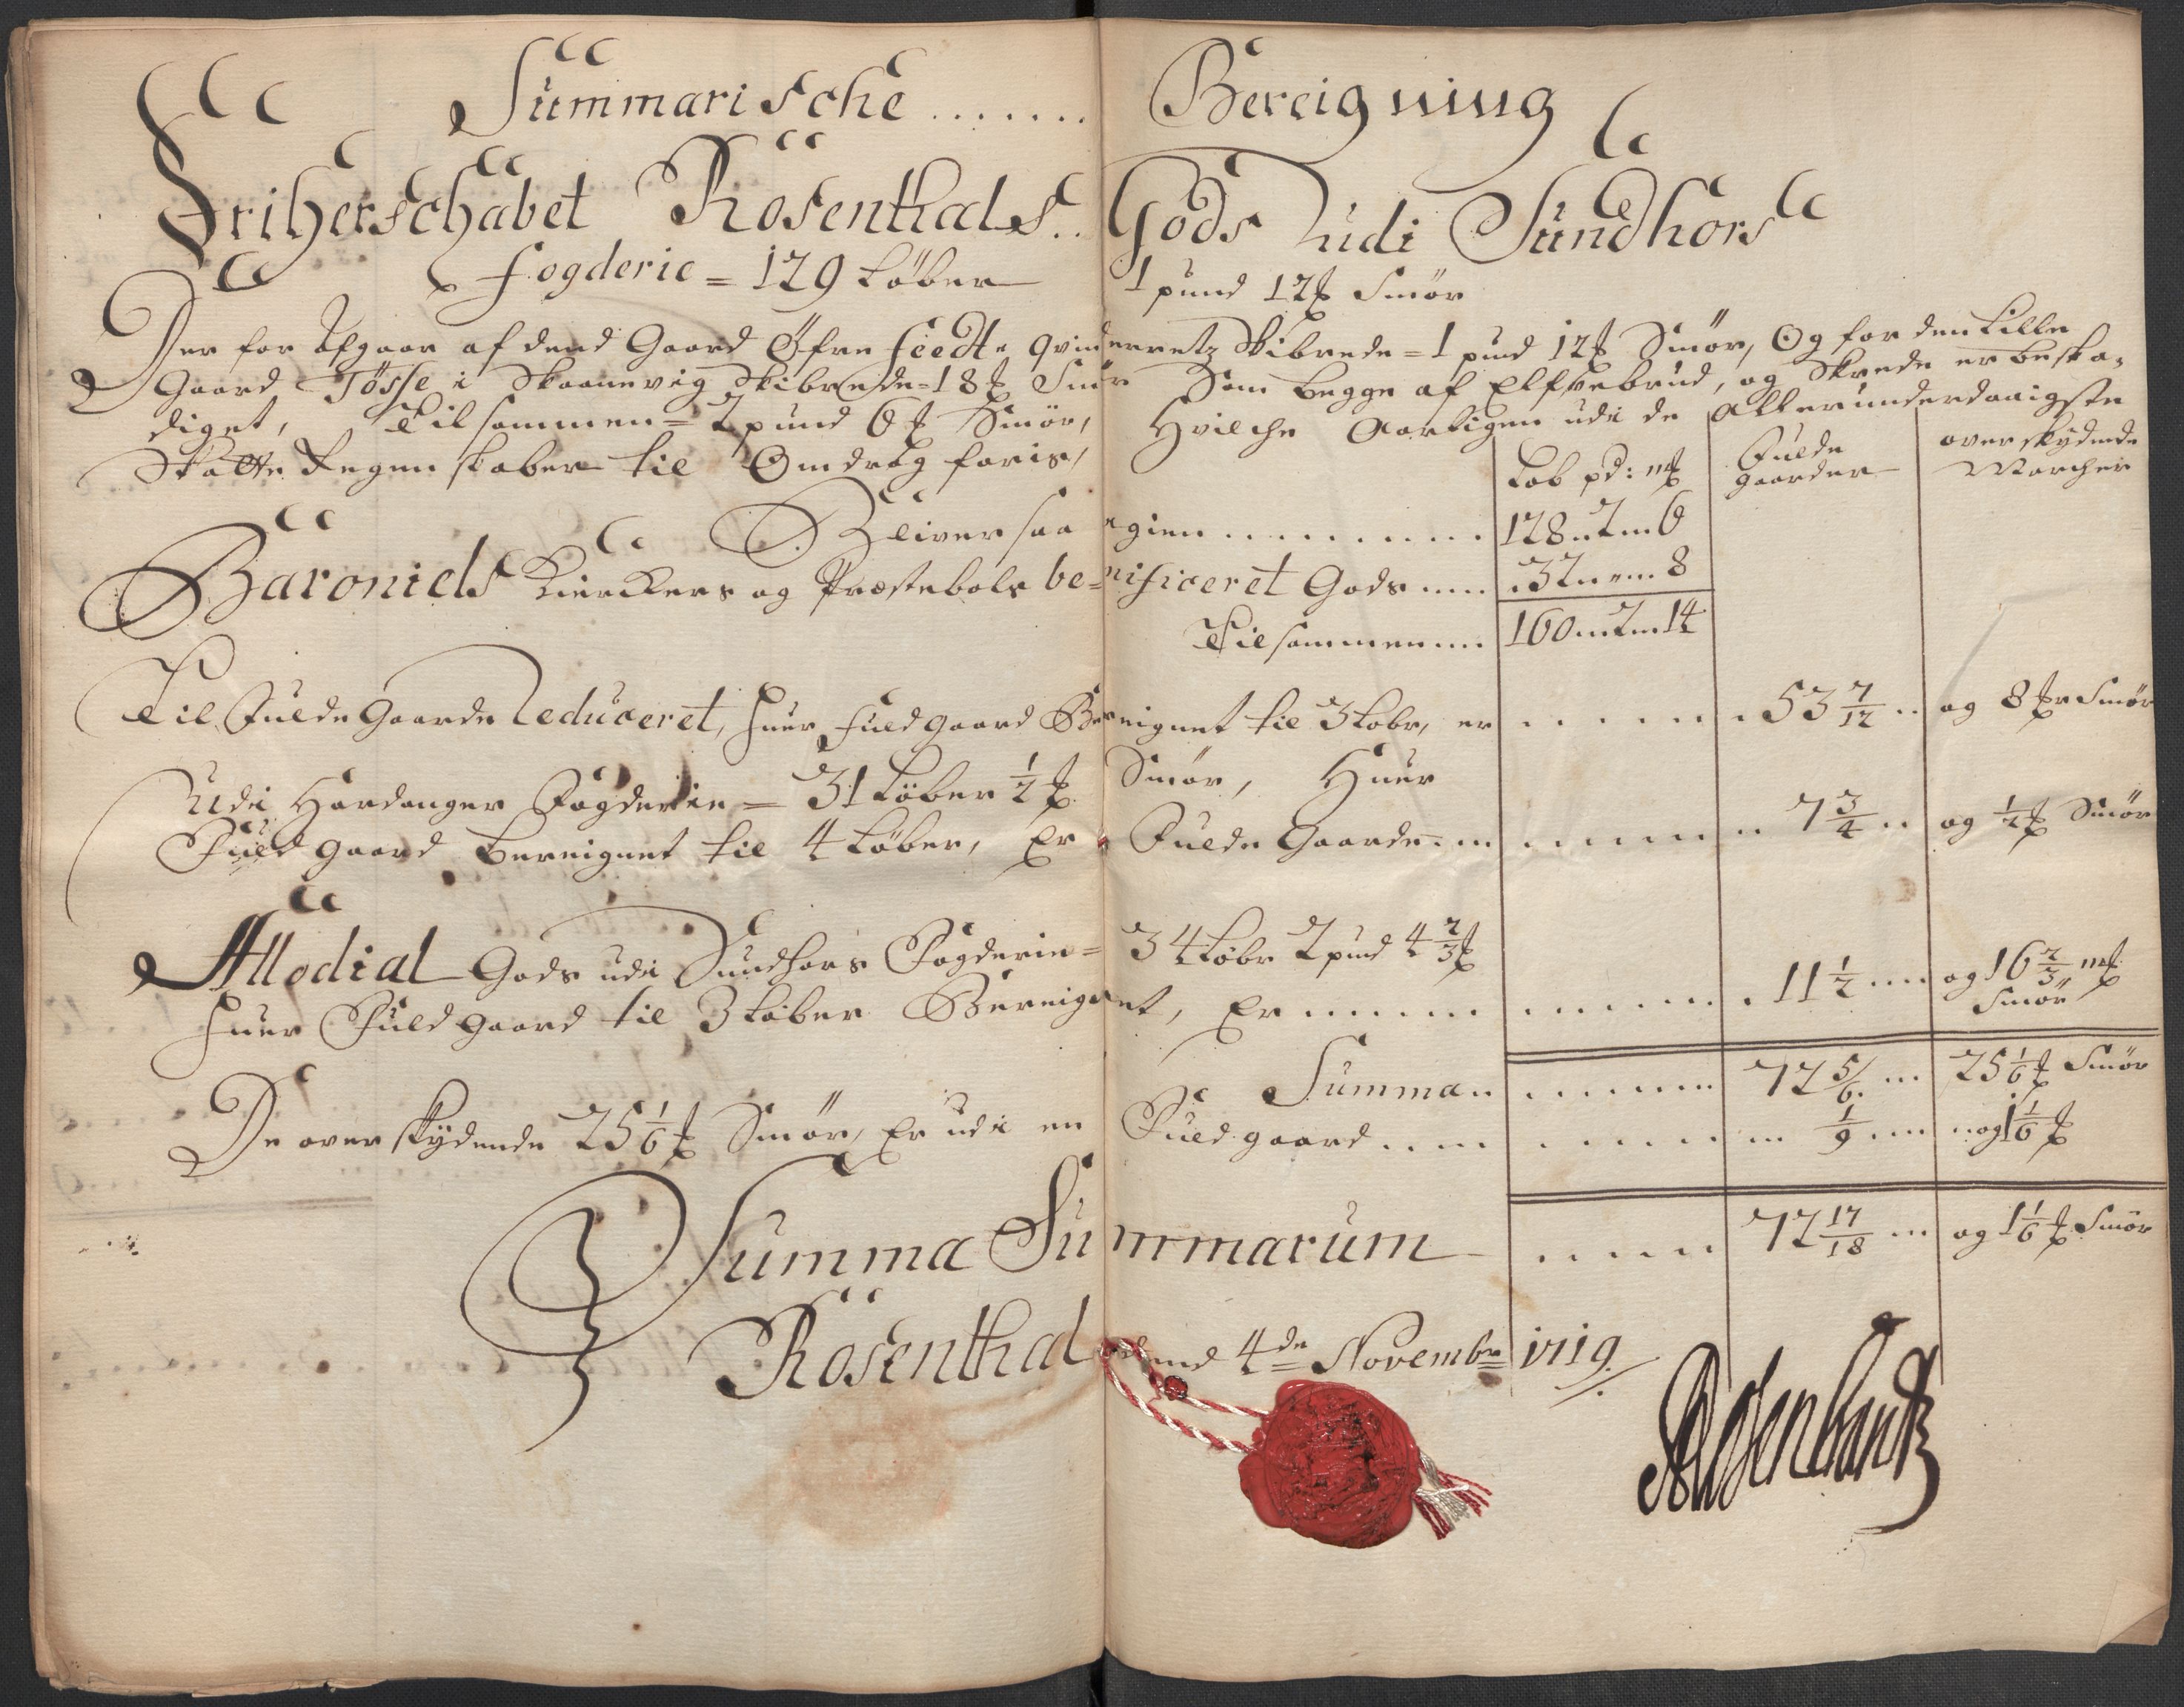 Summarische ....... Bereigning
Friherschabet Rosenthals.. Gods udi Sundhors
fogderie = 129 Løber 1 pund 12 ℔ Smör
Der for Afgaar af dend Gaard Öfre feedt i qvinderretz Skibrede = 1 pund 12 ℔ Smör, Og for den Lille
Gaard Tösse i Skaanevig Skibrede = 18 ℔ Smör Som begge af Elfvebrud, og Skrede er beska-
diget, Tilsammen = 2 pund 6 ℔ Smör, Hvilche Aarligen udi de allerunderdaanigste
Skatte Regenskaber til Omdrag føris,
Løb pd: m℔ | Fulde gaarder | overskydende Marcher
Bliver saa igien ......... 128 .. 2 .. 6
Baroniels Kierckers og Præstebols be=nificeret Gods .... 32 .. „ .. 8
Tilsammen .... 160 .. 2 .. 14
Til Fulde Gaarde Reduceret, huer fuld gaard Bereignet til 3 Løbr, er ...... 53 7/12 .. og 8 ℔r Smör
Udi Hardanger Fogderie = 31 Löber 1/2 ℔ Smör, Huer
Fuld gaard bereignet til 4 Löber, Er Fulde Gaarde .... 7 3/4 .. og 1/2 ℔ Smör
Allodial Gods udi Sundhors Fogderie = 34 Løbr 2 pund 4 2/3 ℔
huer Fuld gaard til 3 Løber Bereignet, Er ...... 11 1/2 .... og 16 2/3 m℔ Smör
Summa .. ...... 72 5/6 ... 25 1/6 ℔ Smör
De overskydende 25 1/6 ℔ Smör, Er udi en Fuld gaard .... 1/9 .... og 1 1/6 ℔
Summa Summarum ..... 72 17/18 ... og 1 1/6 ℔ Smör
Rosenthal dend 4de Novembr 1719.
Rosenkrantz